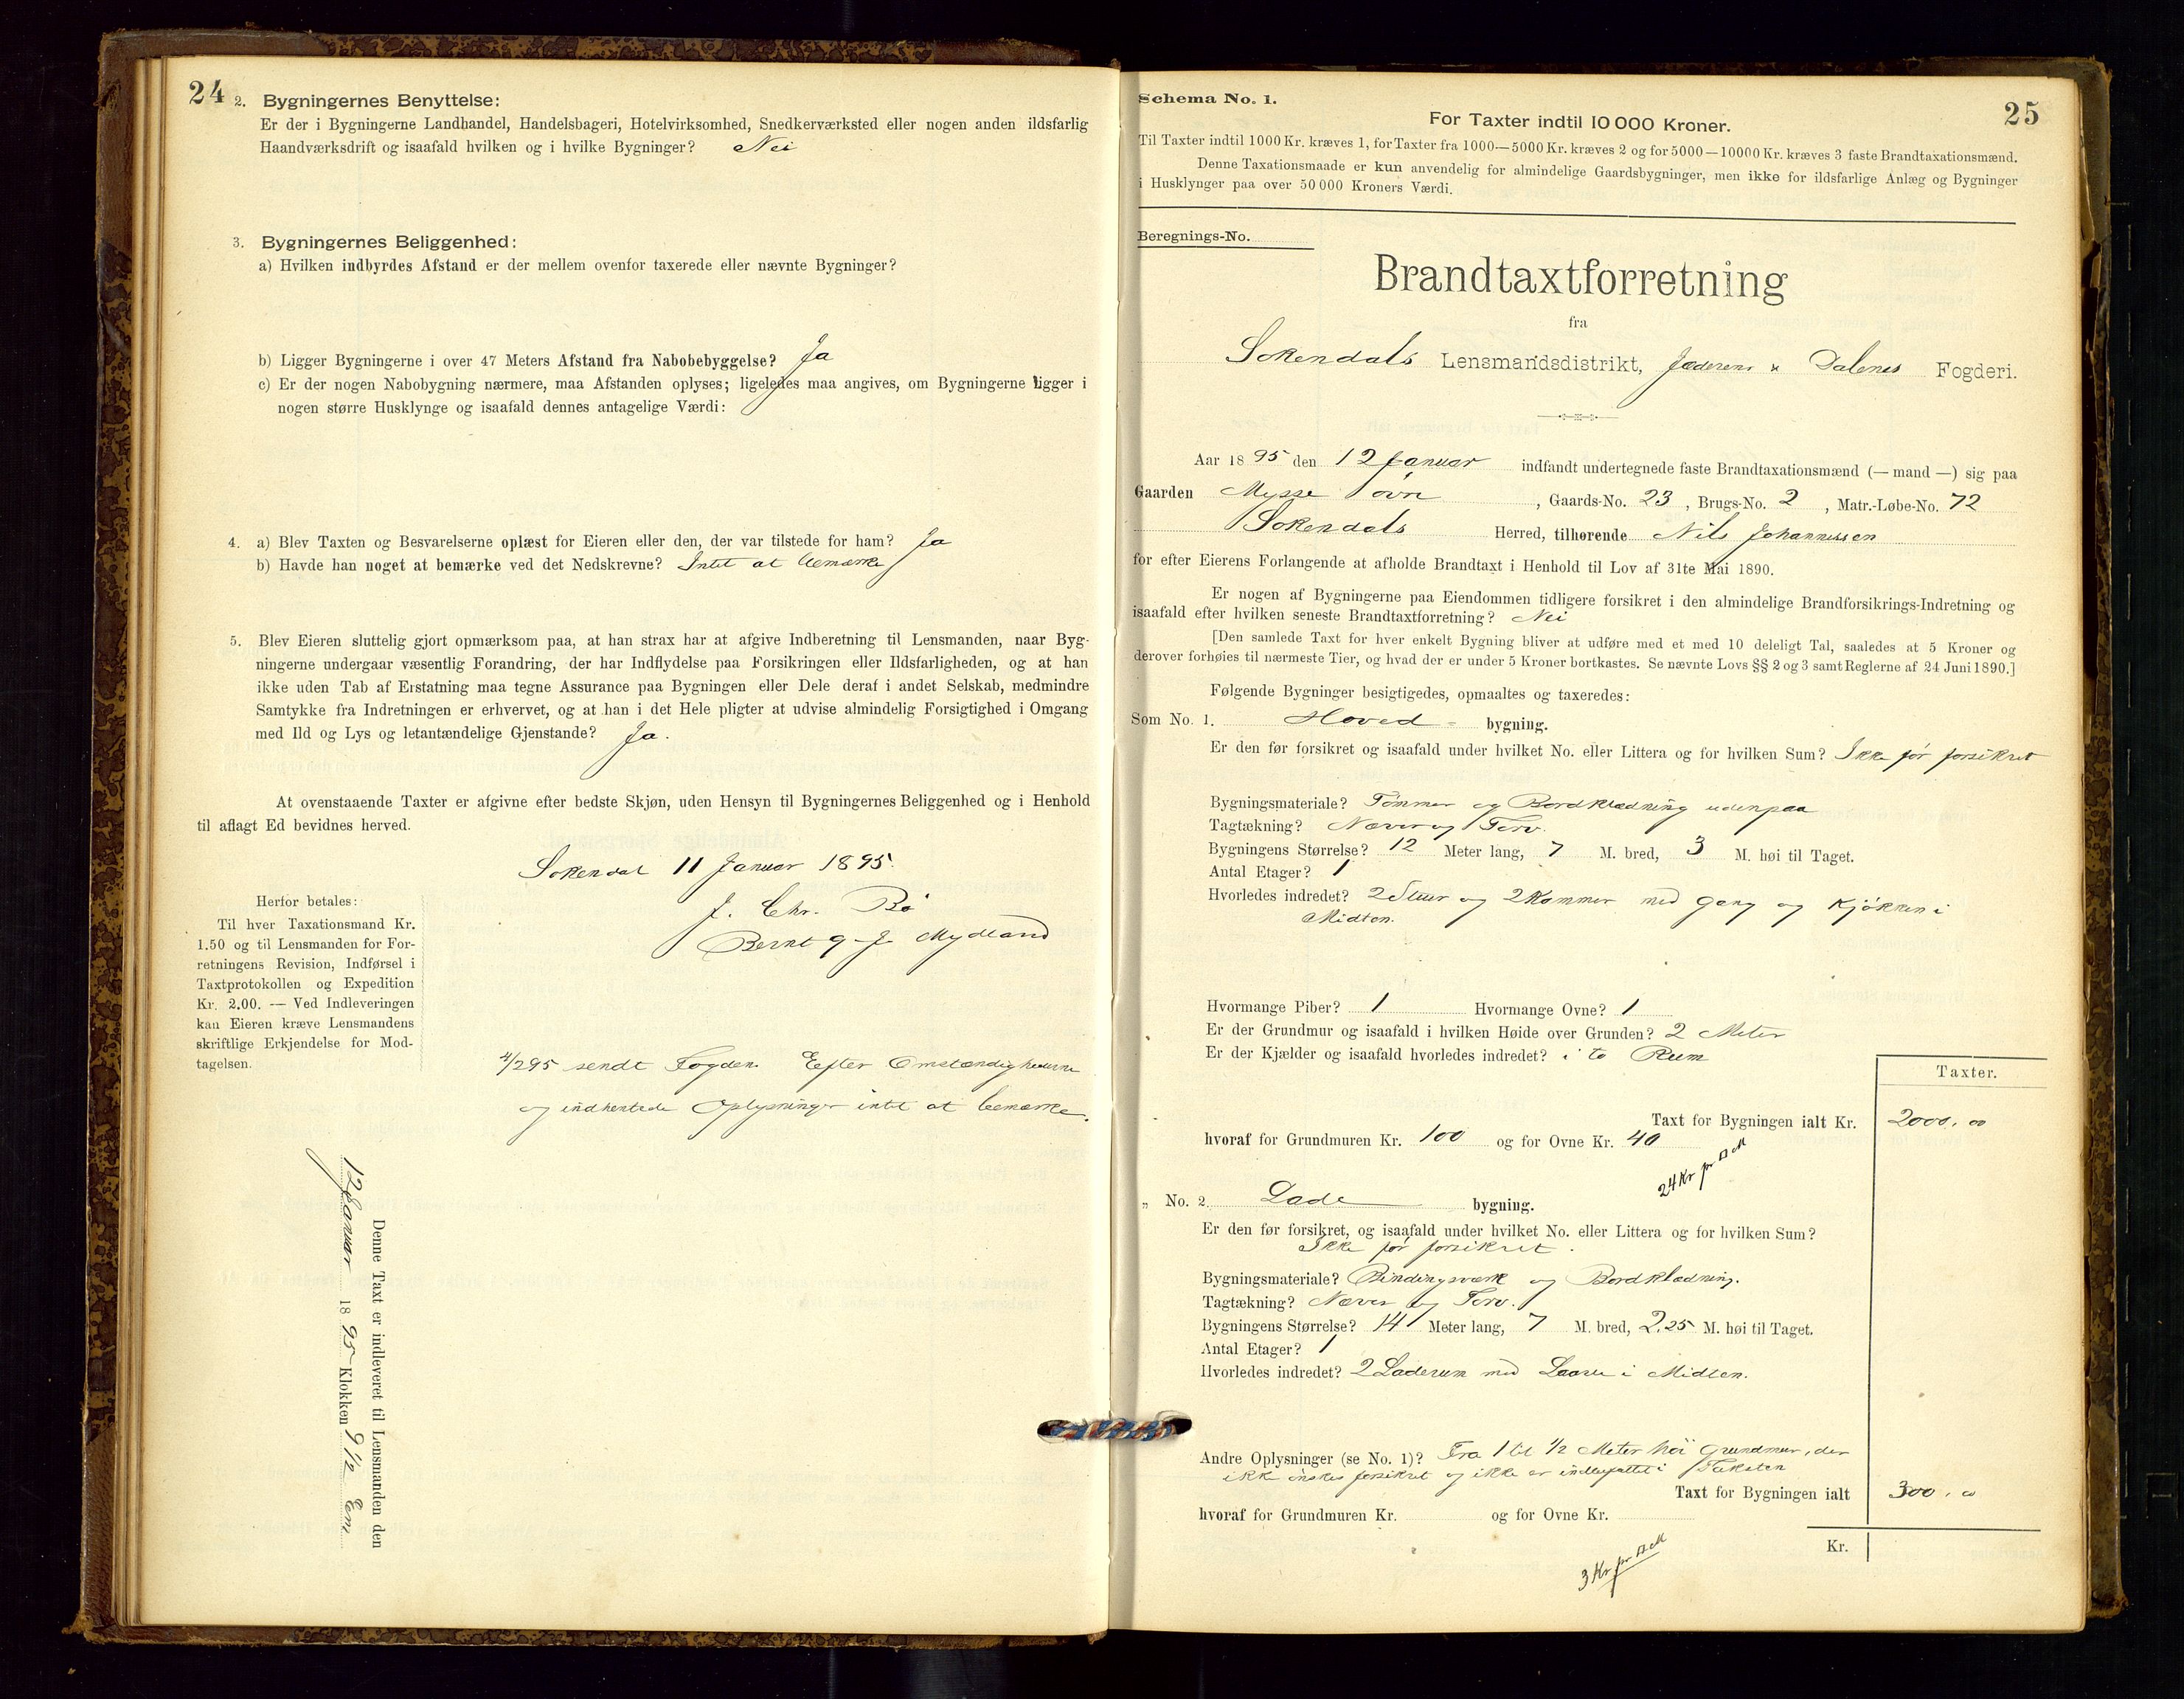 24
2. Bygningernes Benyttelse:
Er der i Bygningerne Landhandel, Handelsbageri, Hotelvirksomhed, Snedkerværksted eller nogen anden ildsfarlig
Haandværksdrift og isaafald hvilken og i hvilke Bygninger? Nei
3. Bygningernes Beliggenhed:
a) Hvilken indbyrdes Afstand er der mellem ovenfor taxerede eller nævnte Bygninger?
b) Ligger Bygningerne i over 47 Meters Afstand fra Nabobebyggelse? Ja
c) Er der nogen Nabobygning nærmere, maa Afstanden oplyses; ligeledes maa angives, om Bygningerne ligger i
nogen større Husklynge og isaafald dennes antagelige Værdi:
4. a) Blev Taxten og Besvarelserne oplæst for Eieren eller den, der var tilstede for ham? Ja
b) Havde han noget at bemærke ved det Nedskrevne? Intet at bemærke
5. Blev Eieren sluttelig gjort opmærksom paa, at han strax har at afgive Indberetning til Lensmanden, naar Byg-
ningerne undergaar væsentlig Forandring, der har Indflydelse paa Forsikringen eller Ildsfarligheden, og at han
ikke uden Tab af Erstatning maa tegne Assurance paa Bygningen eller Dele deraf i andet Selskab, medmindre
Samtykke fra Indretningen er erhvervet, og at han i det Hele pligter at udvise almindelig Forsigtighed i Omgang
med Ild og Lys og letantændelige Gjenstande? Ja.
At ovenstaaende Taxter er afgivne efter bedste Skjøn, uden Hensyn til Bygningernes Beliggenhed og i Henhold
til aflagt Ed bevidnes herved.
Sokendal 11 Januar 1895.
J. Chr. Bö
Bernt J. Mydland
Herfor betales:
Til hver Taxationsmand Kr.
1.50 og til Lensmanden for For-
retningens Revision, Indførsel i
Taxtprotokollen og Expedition
Kr. 2.00. — Ved Indleveringen
kan Eieren kræve Lensmandens
skriftlige Erkjendelse for Mod-
tagelsen.
4/2 95 sendt Fogden. Efter Omstændighederne
og indhentede Oplysninger intet at bemærke.
Denne Taxt er indleveret til Lensmanden den
12 Januar 1895 Klokken 9 1/2 Em
Schema No. 1.
25
For Taxter indtil 10 000 Kroner.
Til Taxter indtil 1000 Kr. kræves 1, for Taxter fra 1000—5000 Kr. kræves 2 og for 5000—10000 Kr. kræves 3 faste Brandtaxationsmænd.
Denne Taxationsmaade er kun anvendelig for almindelige Gaardsbygninger, men ikke for ildsfarlige Anlæg og Bygninger
i Husklynger paa over 50 000 Kroners Værdi.
Beregnings-No.
Brandtaxtforretning
fra
Sokendals Lensmandsdistrikt, Jæderens & Dalenes Fogderi.
Aar 1895 den 12 Januar indfandt undertegnede faste Brandtaxationsmænd (— mand —) sig paa
Gaarden Mysse , Gaards-No. 23, Brugs-No. 2, Matr.-Løbe-No. 72
Sokendals Herred, tilhørende Nils Johannessen
for efter Eierens Forlangende at afholde Brandtaxt i Henhold til Lov af 31te Mai 1890.
Er nogen af Bygningerne paa Eiendommen tidligere forsikret i den almindelige Brandforsikrings-Indretning og
isaafald efter hvilken seneste Brandtaxtforretning? Nei
[Den samlede Taxt for hver enkelt Bygning bliver at udføre med et med 10 deleligt Tal, saaledes at 5 Kroner og
derover forhøies til nærmeste Tier, og hvad der er under 5 Kroner bortkastes. Se nævnte Lovs §§ 2 og 3 samt Reglerne af 24 Juni 1890.]
Følgende Bygninger besigtigedes, opmaaltes og taxeredes:
Som No. 1. Hoved - bygning.
Er den før forsikret og isaafald under hvilket No. eller Littera og for hvilken Sum? Ikke før forsikret
Bygningsmateriale? Tömmer og Bordklædning udenpaa
Tagtækning? Næver og Torv.
Bygningens Størrelse? 12 Meter lang, 7 M. bred, 3 M. høi til Taget.
Antal Etager? 1
Hvorledes indredet? 2 Stuer og 2 Kammer med gang og Kjökken i
Midten.
Hvormange Piber? 1 Hvormange Ovne? 1
Er der Grundmur og isaafald i hvilken Høide over Grunden? 2 Meter
Er der Kjælder og isaafald hvorledes indredet? i to Rum
Taxter.
Taxt for Bygningen ialt Kr. 2000.00
hvoraf for Grundmuren Kr. 100 og for Ovne Kr. 40
24 Kr pr □ M
„ No. 2. Lade bygning.
Er den før forsikret, og isaafald under hvilket No. eller Littera og for hvilken Sum?
Ikke før forsikret.
Bygningsmateriale? Bindingsværk og Bordklædning.
Tagtækning? Næver og Torv.
Bygningens Størrelse? 14 Meter lang, 7 M. bred, 2,25 M. høi til Taget.
Antal Etager? 1
Hvorledes indredet? 2 Laderum med Laave i Midten.
Andre Oplysninger (se No. 1)? Fra 1 til 1/2 Meter höi grundmur, der
ikke önskes forsikret og ikke er indbefattet i Taksten
Taxt for Bygningen ialt 300.00
hvoraf for Grundmuren Kr. og for Ovne Kr.
Kr.
3 Kr pr □ M